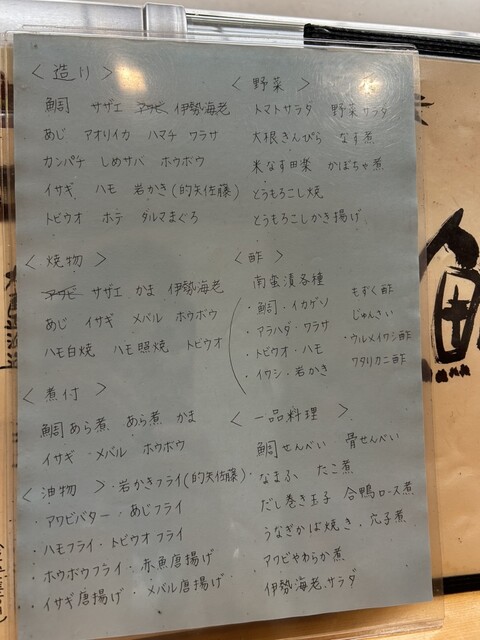 ＜ 造り ＞
鯛 サザエ アワビ 伊勢海老
あじ アオリイカ ハマチ ワラサ
カンパチ しめサバ ホウボウ
イサギ ハモ 岩かき(的矢佐藤)
トビウオ ホテ ダルマまぐろ
＜ 焼物 ＞
アワビ サザエ かま 伊勢海老
あじ イサギ メバル ホウボウ
ハモ白焼 ハモ照焼 トビウオ
＜ 煮付 ＞
鯛あら煮 あら煮 かま
イサギ・メバル ホウボウ
＜ 油物 ＞・岩かきフライ(的矢佐藤)・
・アワビバター・あじフライ
・ハモフライ・トビウオフライ
・ホウボウフライ・赤魚唐揚げ
・イサギ唐揚げ・メバル唐揚げ
＜ 野菜 ＞
トマトサラダ 野菜サラダ
大根きんぴら なす煮
米なす田楽 かぼちゃ煮
とうもろこし焼
とうもろこしかき揚げ
＜ 酢 ＞
南蛮漬各種
・鯛・イカゲソ
・アラハダ・ワラサ
・トビウオ・ハモ
・イワシ・岩かき
もずく酢
じゅんさい
・ウルメイワシ酢
ワタリカニ酢
＜ 一品料理 ＞
鯛せんべい 骨せんべい
なまふ たこ煮
だし巻き玉子 合鴨ロース煮
うなぎかば焼き・穴子煮
アワビやわらか煮
伊勢海老サラダ